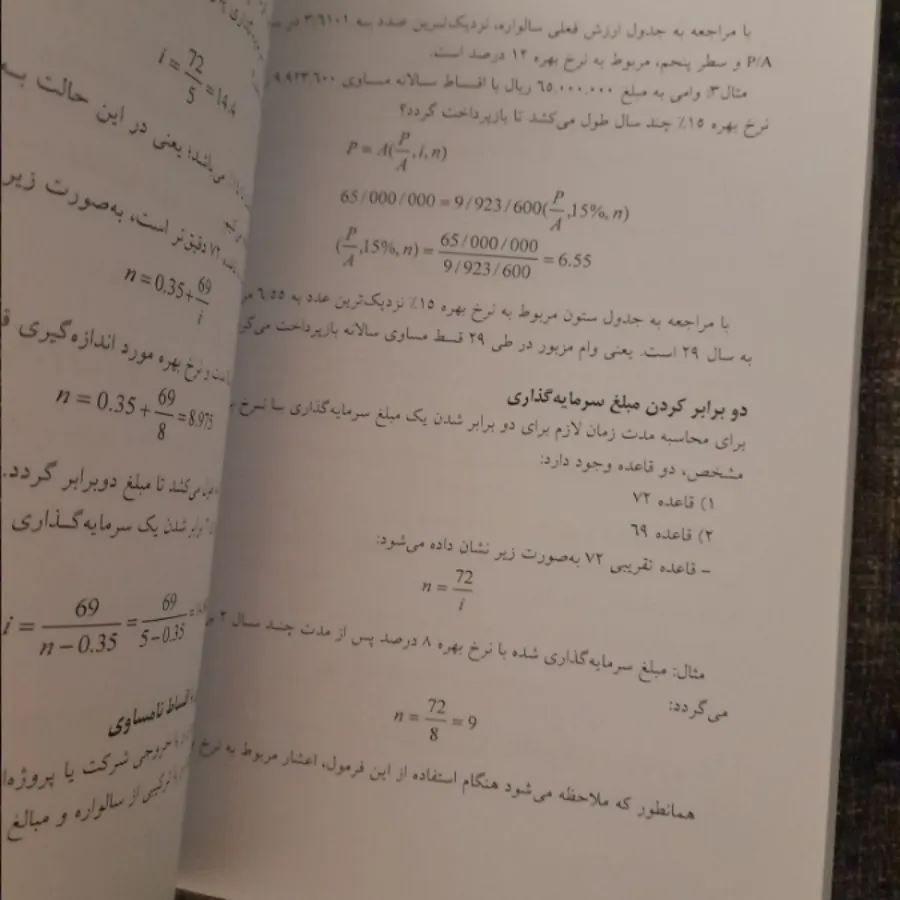 با مراجعه به جدول ارزش فعلی سالواره، نزدیک‌ترین عدد به ۳/۶۱۰۱
P/A و سطر پنجم، مربوط به نرخ بهره ۱۲ درصد است.
مثال۳: وامی به مبلغ ۶۵.۰۰۰.۰۰۰ ریال با اقساط سالانه مساوی ۹.۹۲۳.۶۰۰
نرخ بهره ۱۵٪ چند سال طول می‌کشد تا بازپرداخت گردد؟
P = A(P/A, i, n)
65/000/000 = 9/923/600(P/A, 15%, n)
(P/A, 15%, n) = 65/000/000 / 9/923/600 = 6.55
با مراجعه به جدول ستون مربوط به نرخ بهره ۱۵٪ نزدیک‌ترین عدد به ۶/۵۵
به سال ۲۹ است. یعنی وام مزبور در طی ۲۹ قسط مساوی سالانه بازپرداخت
دو برابر کردن مبلغ سرمایه‌گذاری
برای محاسبه مدت زمان لازم برای دو برابر شدن یک مبلغ سرمایه‌گذاری با نرخ
مشخص، دو قاعده وجود دارد:
۱) قاعده ۷۲
۲) قاعده ۶۹
– قاعده تقریبی ۷۲ به‌صورت زیر نشان داده می‌شود:
n = 72/i
مثال: مبلغ سرمایه‌گذاری شده با نرخ بهره ۸ درصد پس از مدت چند سال ۲
می‌گردد:
n = 72/8 = 9
همانطور که ملاحظه می‌شود هنگام استفاده از این فرمول، اعشار مربوط به نرخ
i = 72/5 = 14.4
می‌باشد؛ یعنی در این حالت
۷۲ دقیق‌تر است، به‌صورت زیر
n = 0.35 + 69/i
و نرخ بهره مورد اندازه‌گیری
n = 0.35 + 69/8 = 8.975
می‌کشد تا مبلغ دوبرابر گردد.
برابر شدن یک سرمایه‌گذاری
i = 69/n − 0.35 = 69/5 − 0.35 =
اقساط نامساوی
خروجی شرکت یا پروژه
ترکیبی از سالواره و مبالغ